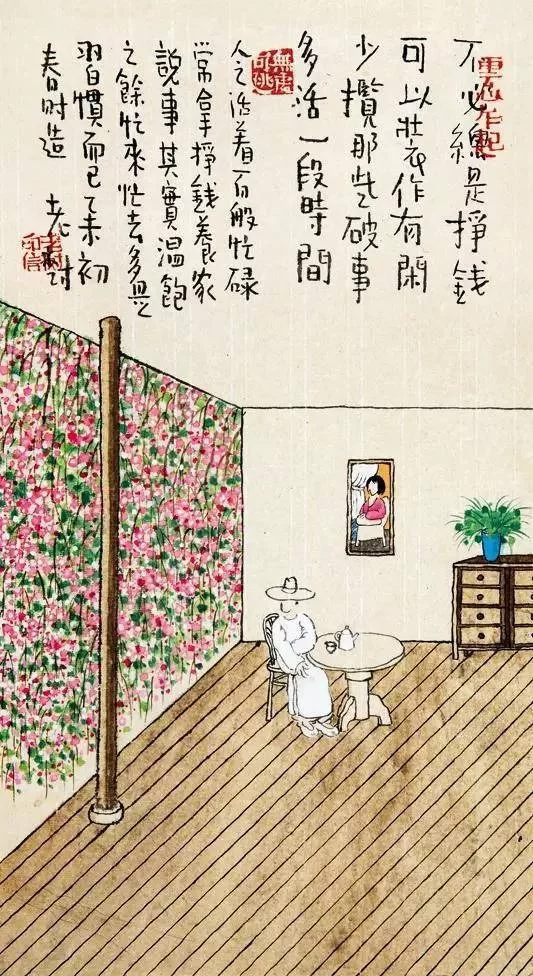 不必總是掙錢
可以裝作有閑
少攬那些破事
多活一段時間
無處可逃
人之活着百般忙碌
常拿掙錢養家
說事其實溫飽
之餘忙來忙去多是
習慣而已乙未初
春時造 老樹